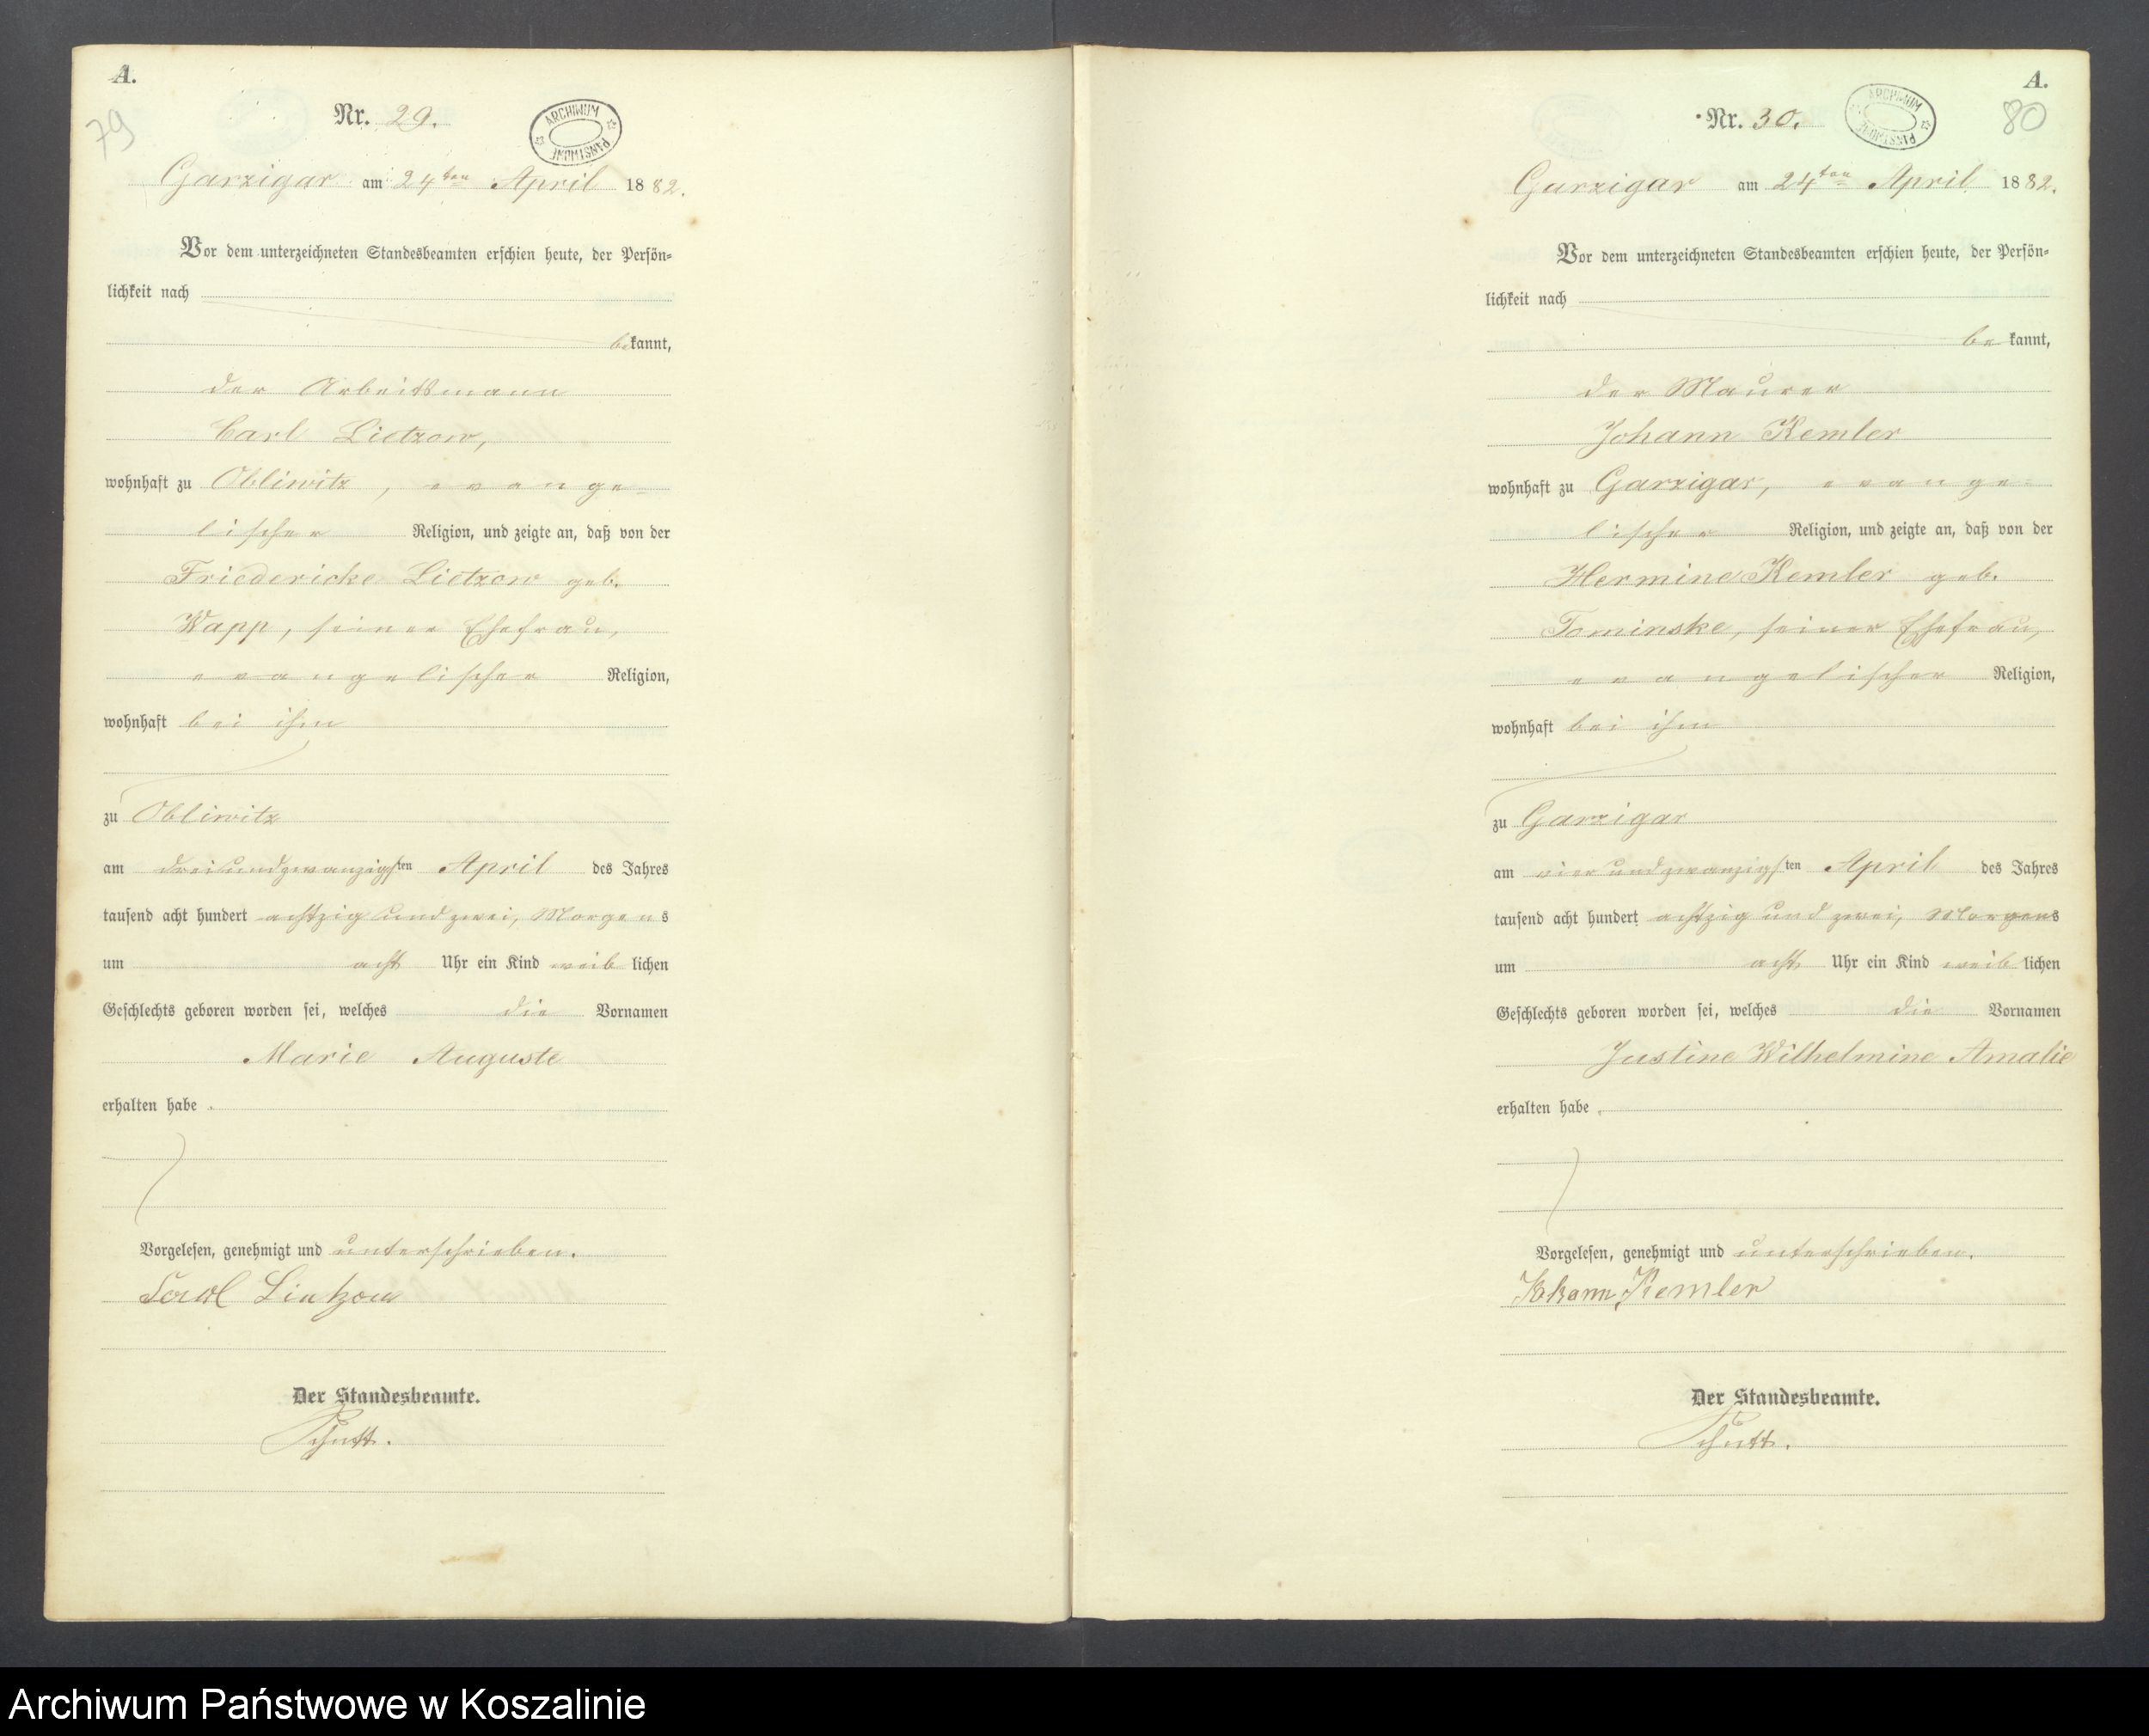 A.
79
Nr. 29.
ARCHIWUM PAŃSTWOWE
Garzigar am 24ten April 1882.
Vor dem unterzeichneten Standesbeamten erschien heute, der Persön-
lichkeit nach
bekannt,
der Arbeitsmann
Carl Lietzow,
wohnhaft zu Obliwitz, evange-
lischer Religion, und zeigte an, daß von der
Friedericke Lietzow geb.
Wapp, seiner Ehefrau,
evangelischer Religion,
wohnhaft bei ihm
zu Obliwitz
am dreiundzwanzigsten April des Jahres
tausend acht hundert achtzig und zwei, Morgens
um acht Uhr ein Kind weiblichen
Geschlechts geboren worden sei, welches die Vornamen
Marie Auguste
erhalten habe.
Vorgelesen, genehmigt und unterschrieben.
Carl Lietzow
Der Standesbeamte.
Schutt.
A.
80
Nr. 30.
ARCHIWUM PAŃSTWOWE
Garzigar am 24ten April 1882.
Vor dem unterzeichneten Standesbeamten erschien heute, der Persön-
lichkeit nach
bekannt,
der Maurer
Johann Kemler
wohnhaft zu Garzigar, evange-
lischer Religion, und zeigte an, daß von der
Hermine Kemler geb.
Tominske, seiner Ehefrau,
evangelischer Religion,
wohnhaft bei ihm
zu Garzigar
am vierundzwanzigsten April des Jahres
tausend acht hundert achtzig und zwei, Morgens
um acht Uhr ein Kind weiblichen
Geschlechts geboren worden sei, welches die Vornamen
Justine Wilhelmine Amalie
erhalten habe.
Vorgelesen, genehmigt und unterschrieben.
Johann Kemler
Der Standesbeamte.
Schutt.
Archiwum Państwowe w Koszalinie